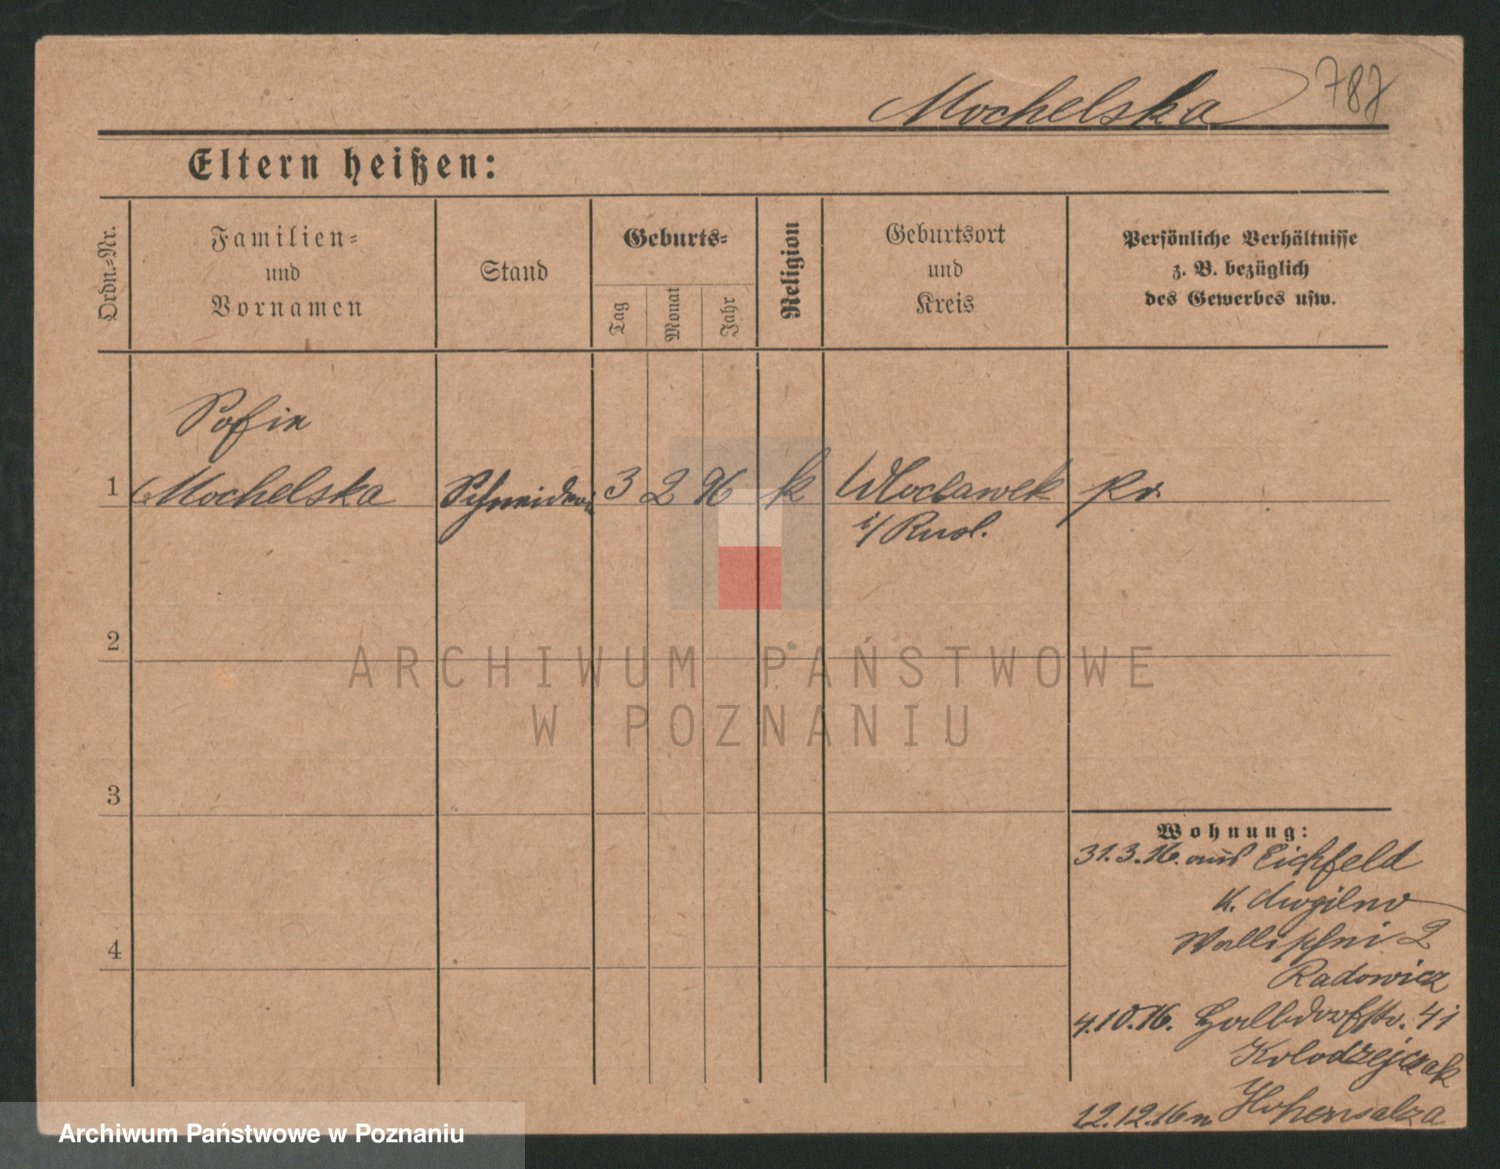 Mochelska 787
Eltern heißen:
Ordn.-Nr.
Familien-
und
Vornamen
Stand
Geburts-
Tag
Monat
Jahr
Religion
Geburtsort
und
Kreis
Persönliche Verhältnisse
z. B. bezüglich
des Gewerbes usw.
Sofie
1 Mochelska Schneiderin 3 2 96 k Wloclawek Rr.
i/ Russl.
2
ARCHIWUM PAŃSTWOWE
W POZNANIU
3
Wohnung:
31.3.16. aus Eichfeld
K. Mogilno
Wallischei 2
4
Radowicz
4.10.16. Halbdorfstr. 41
Kolodzejczak
12.12.16 n. Hohensalza
Archiwum Państwowe w Poznaniu